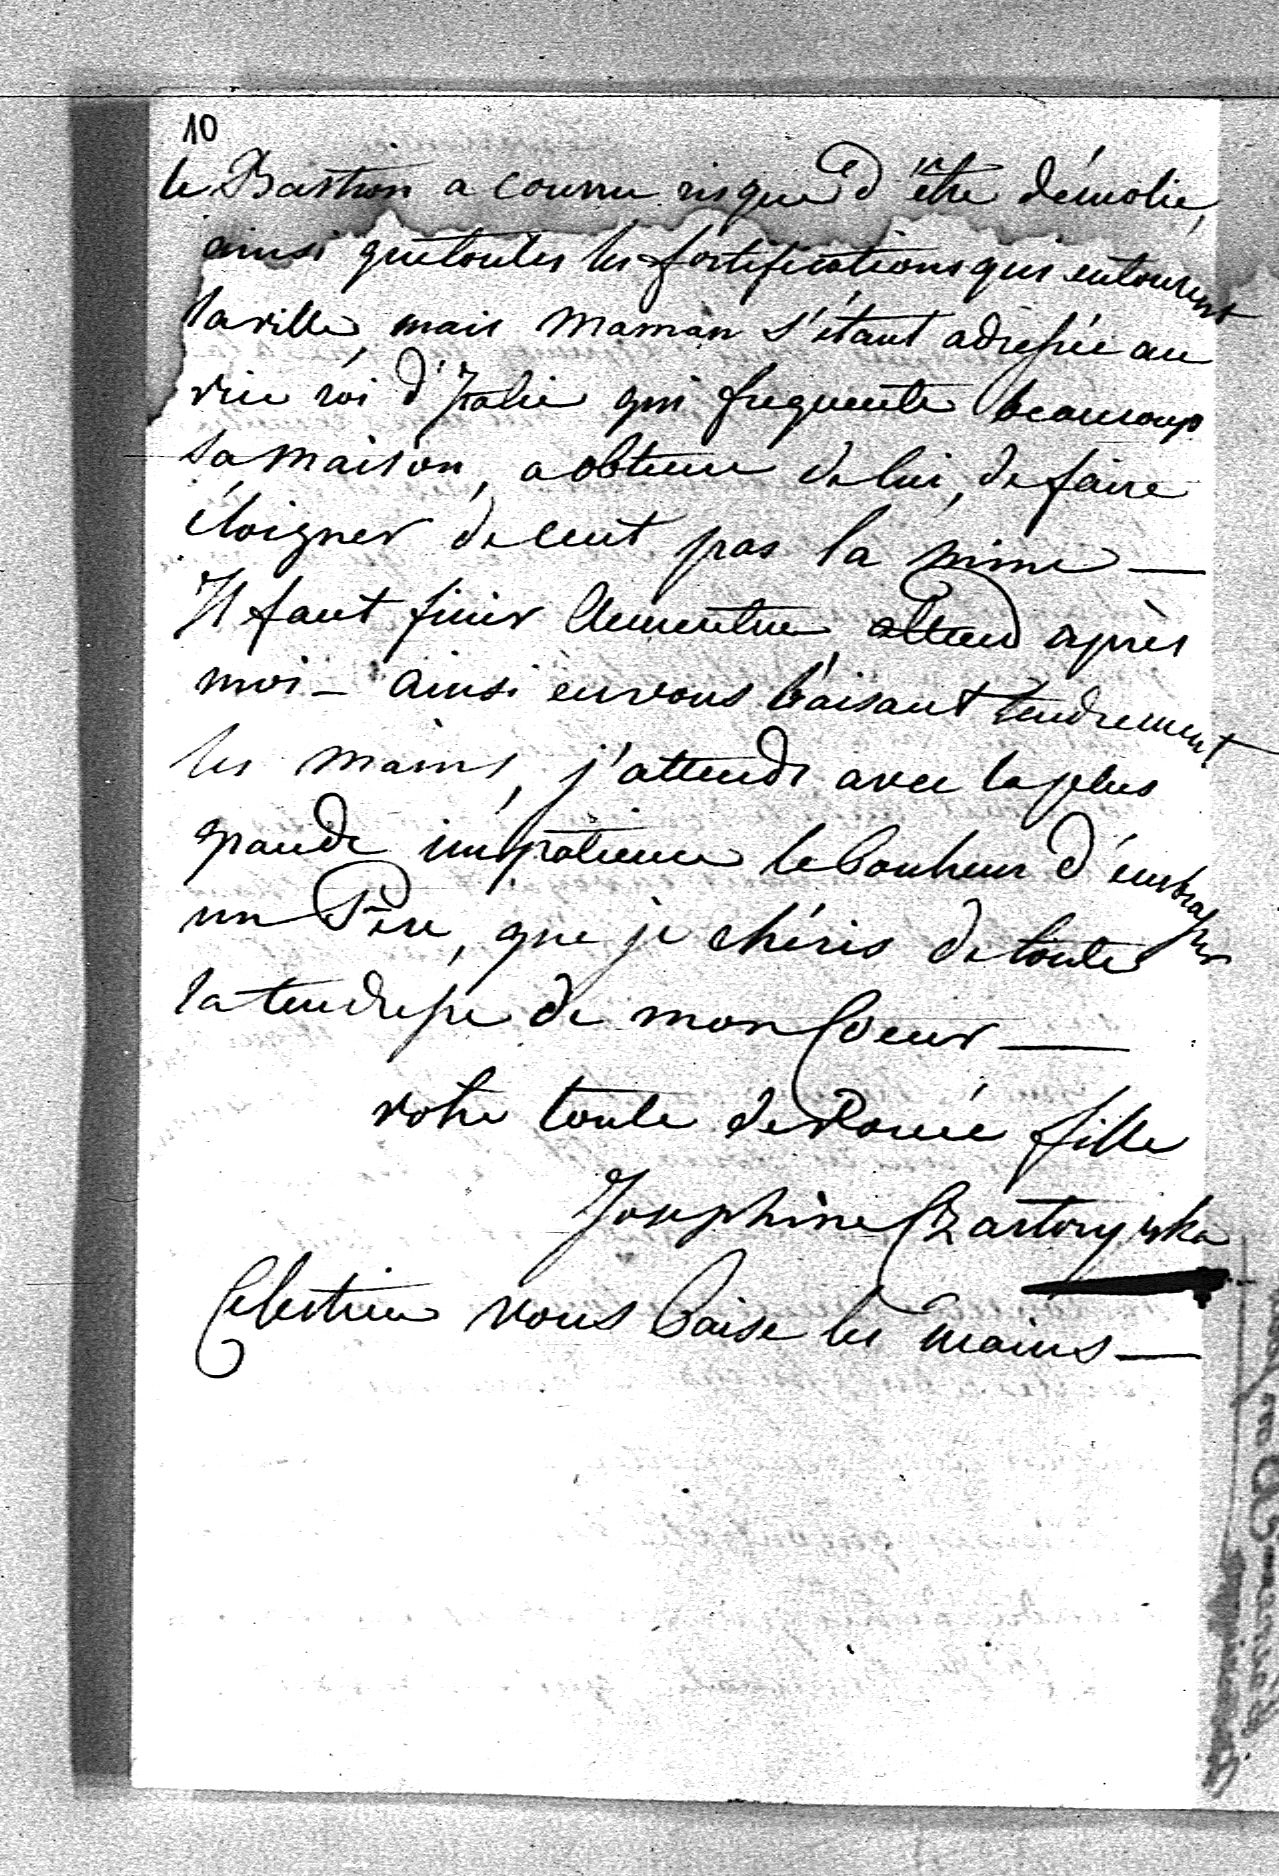 10
le Bastion a courru risque d'être démolie,
ainsi que toutes les fortifications qui entourent
la ville, mais Maman s'étant adressée au
vice roi d'Italie qui frequente beaucoup
sa maison, a obtenu de lui, de faire
éloigner de cent pas la mine —
Il faut finir Clementine attend après
moi — ainsi en vous baisant tendrement
les mains, j'attends avec la plus
grande impatience le bonheur d'embrasser
un Père, que je chéris de toute
la tendresse de mon Coeur —
votre toute devouée fille
Josephine Czartoryska
Celestine vous baise les mains —